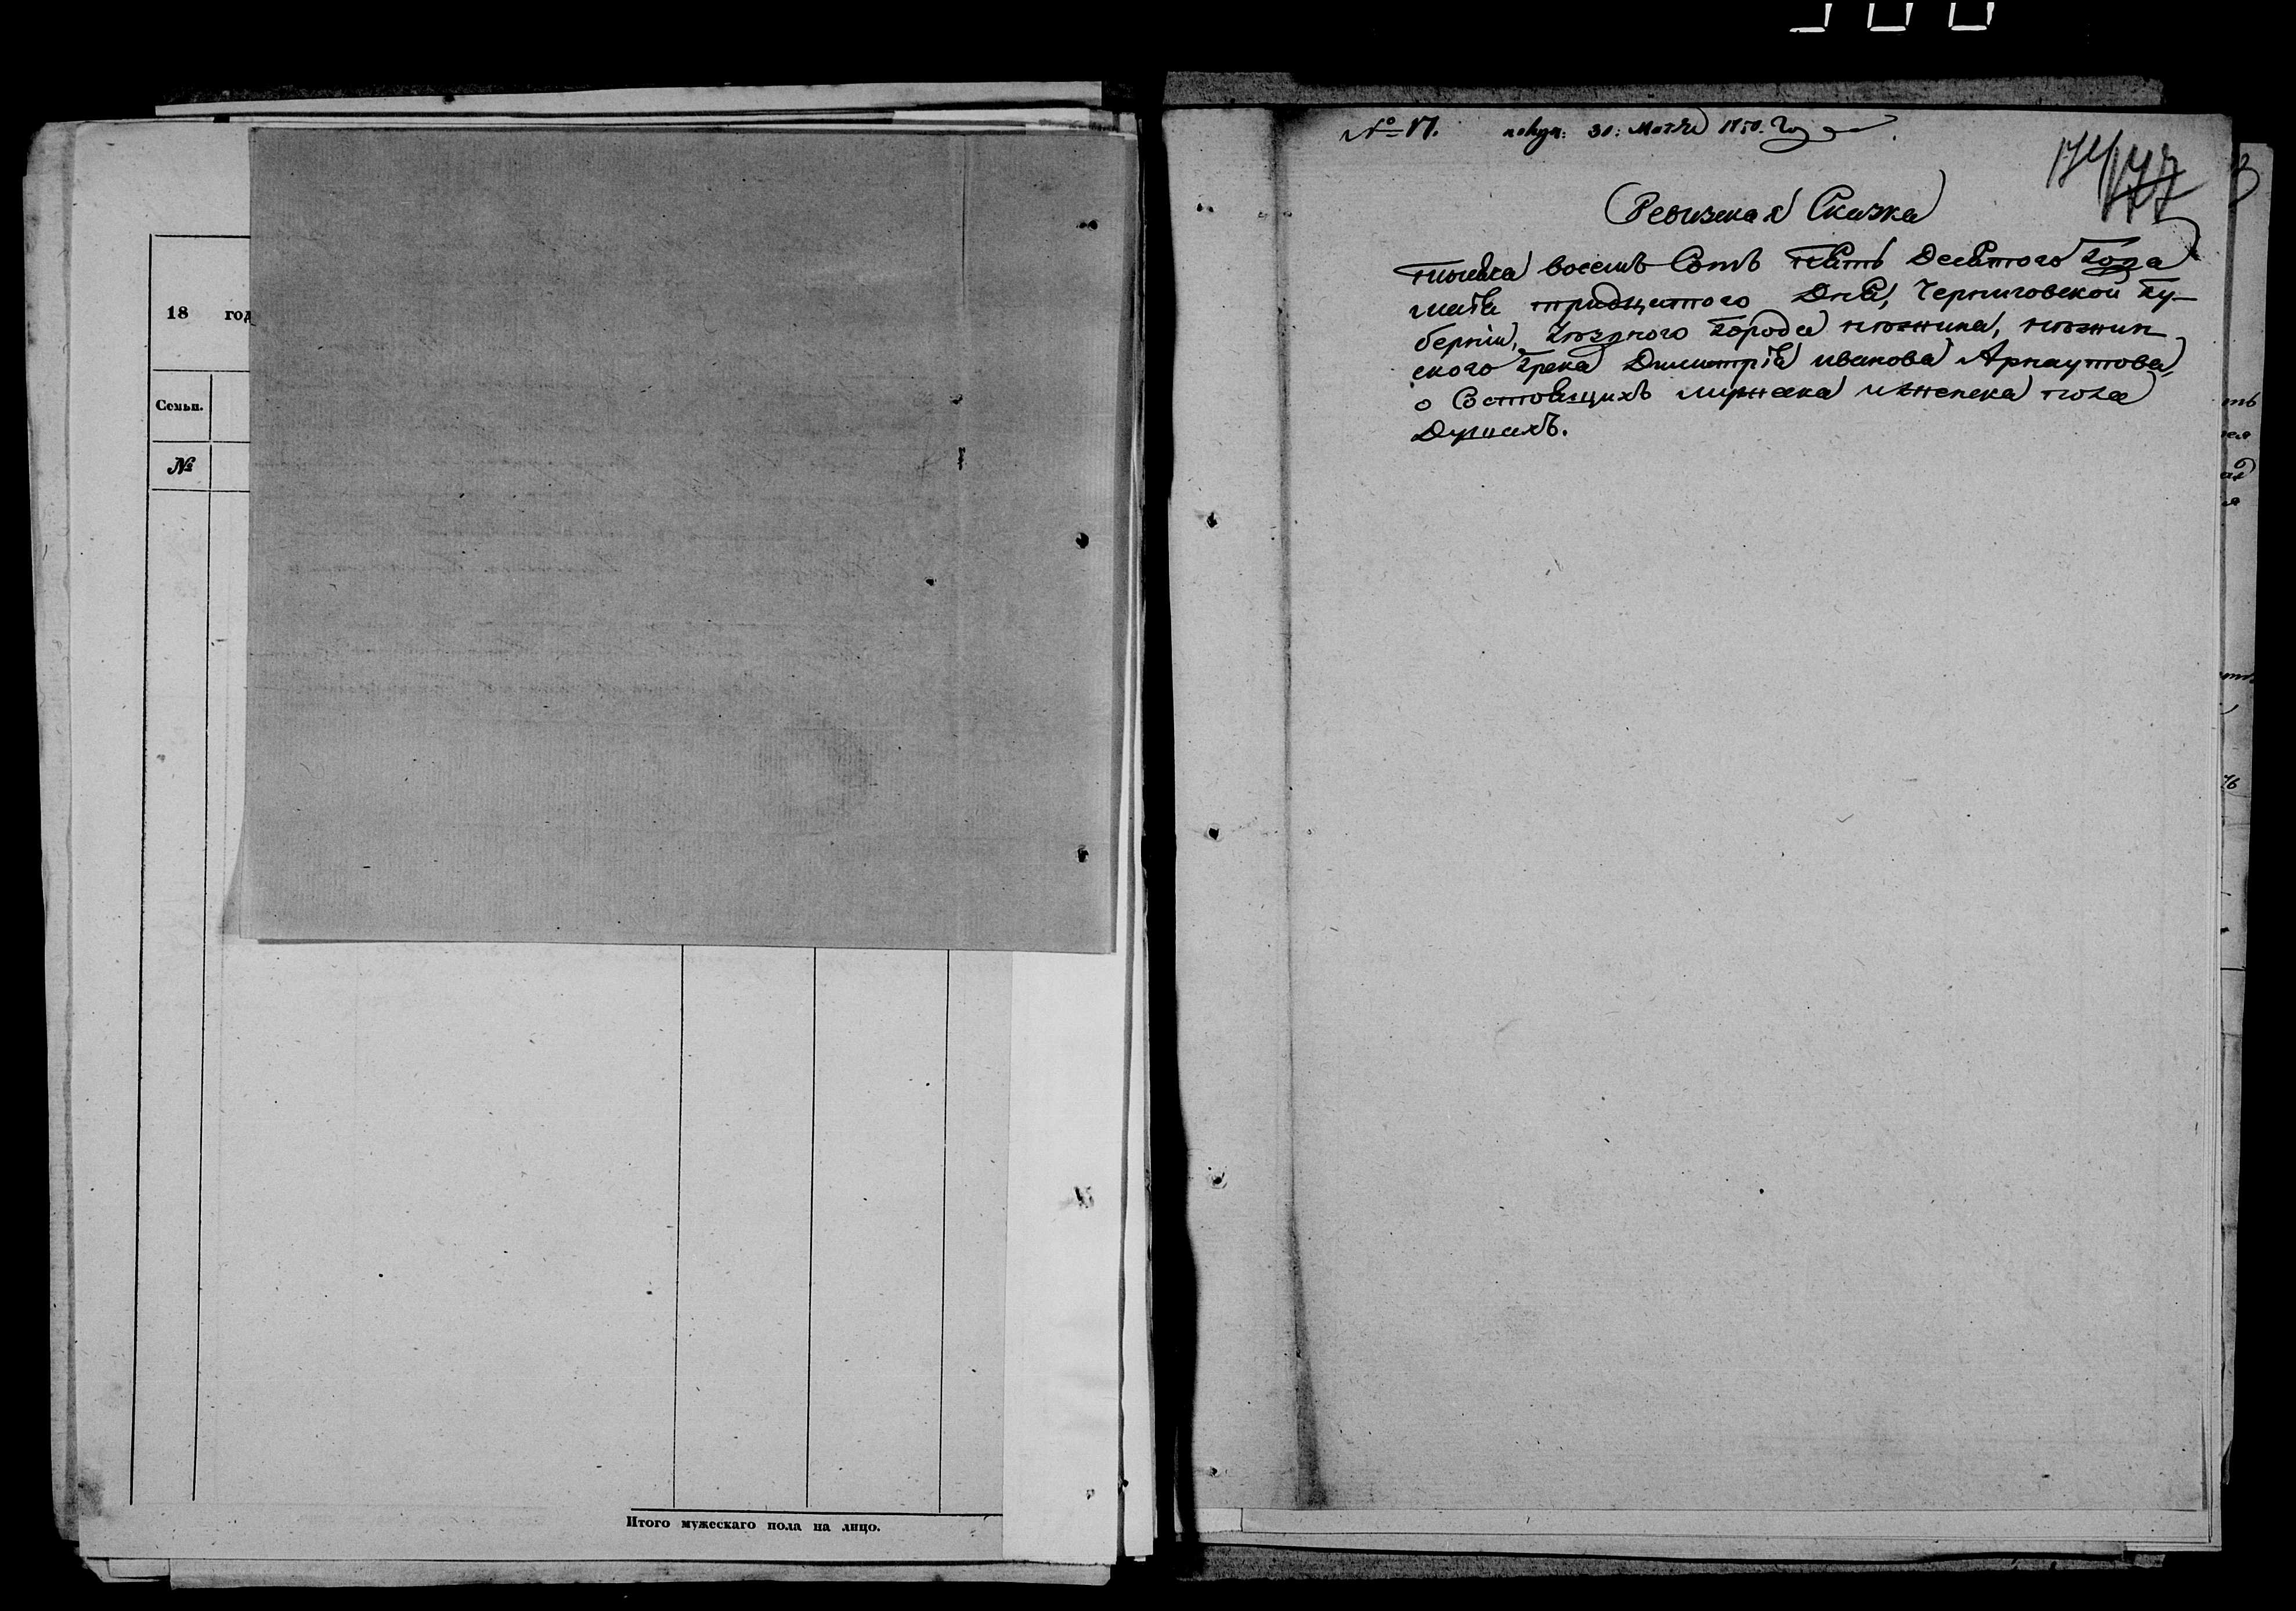 18 год
Семьи.
№
Итого мужескаго пола на лицо.
№ 17. получ: 30: Маія 1850. года
174 177
Ревизская Сказка
тысяча восемь Сотъ пять Десятого Года
маія тридцатого Дня, Черниговской Гу-
берніи, уѣзного Города нѣжина, нѣжин
ского Грека Димитрія иванова Арнаутова,
о Состоящихъ мужеска иженска пола
Душахъ.